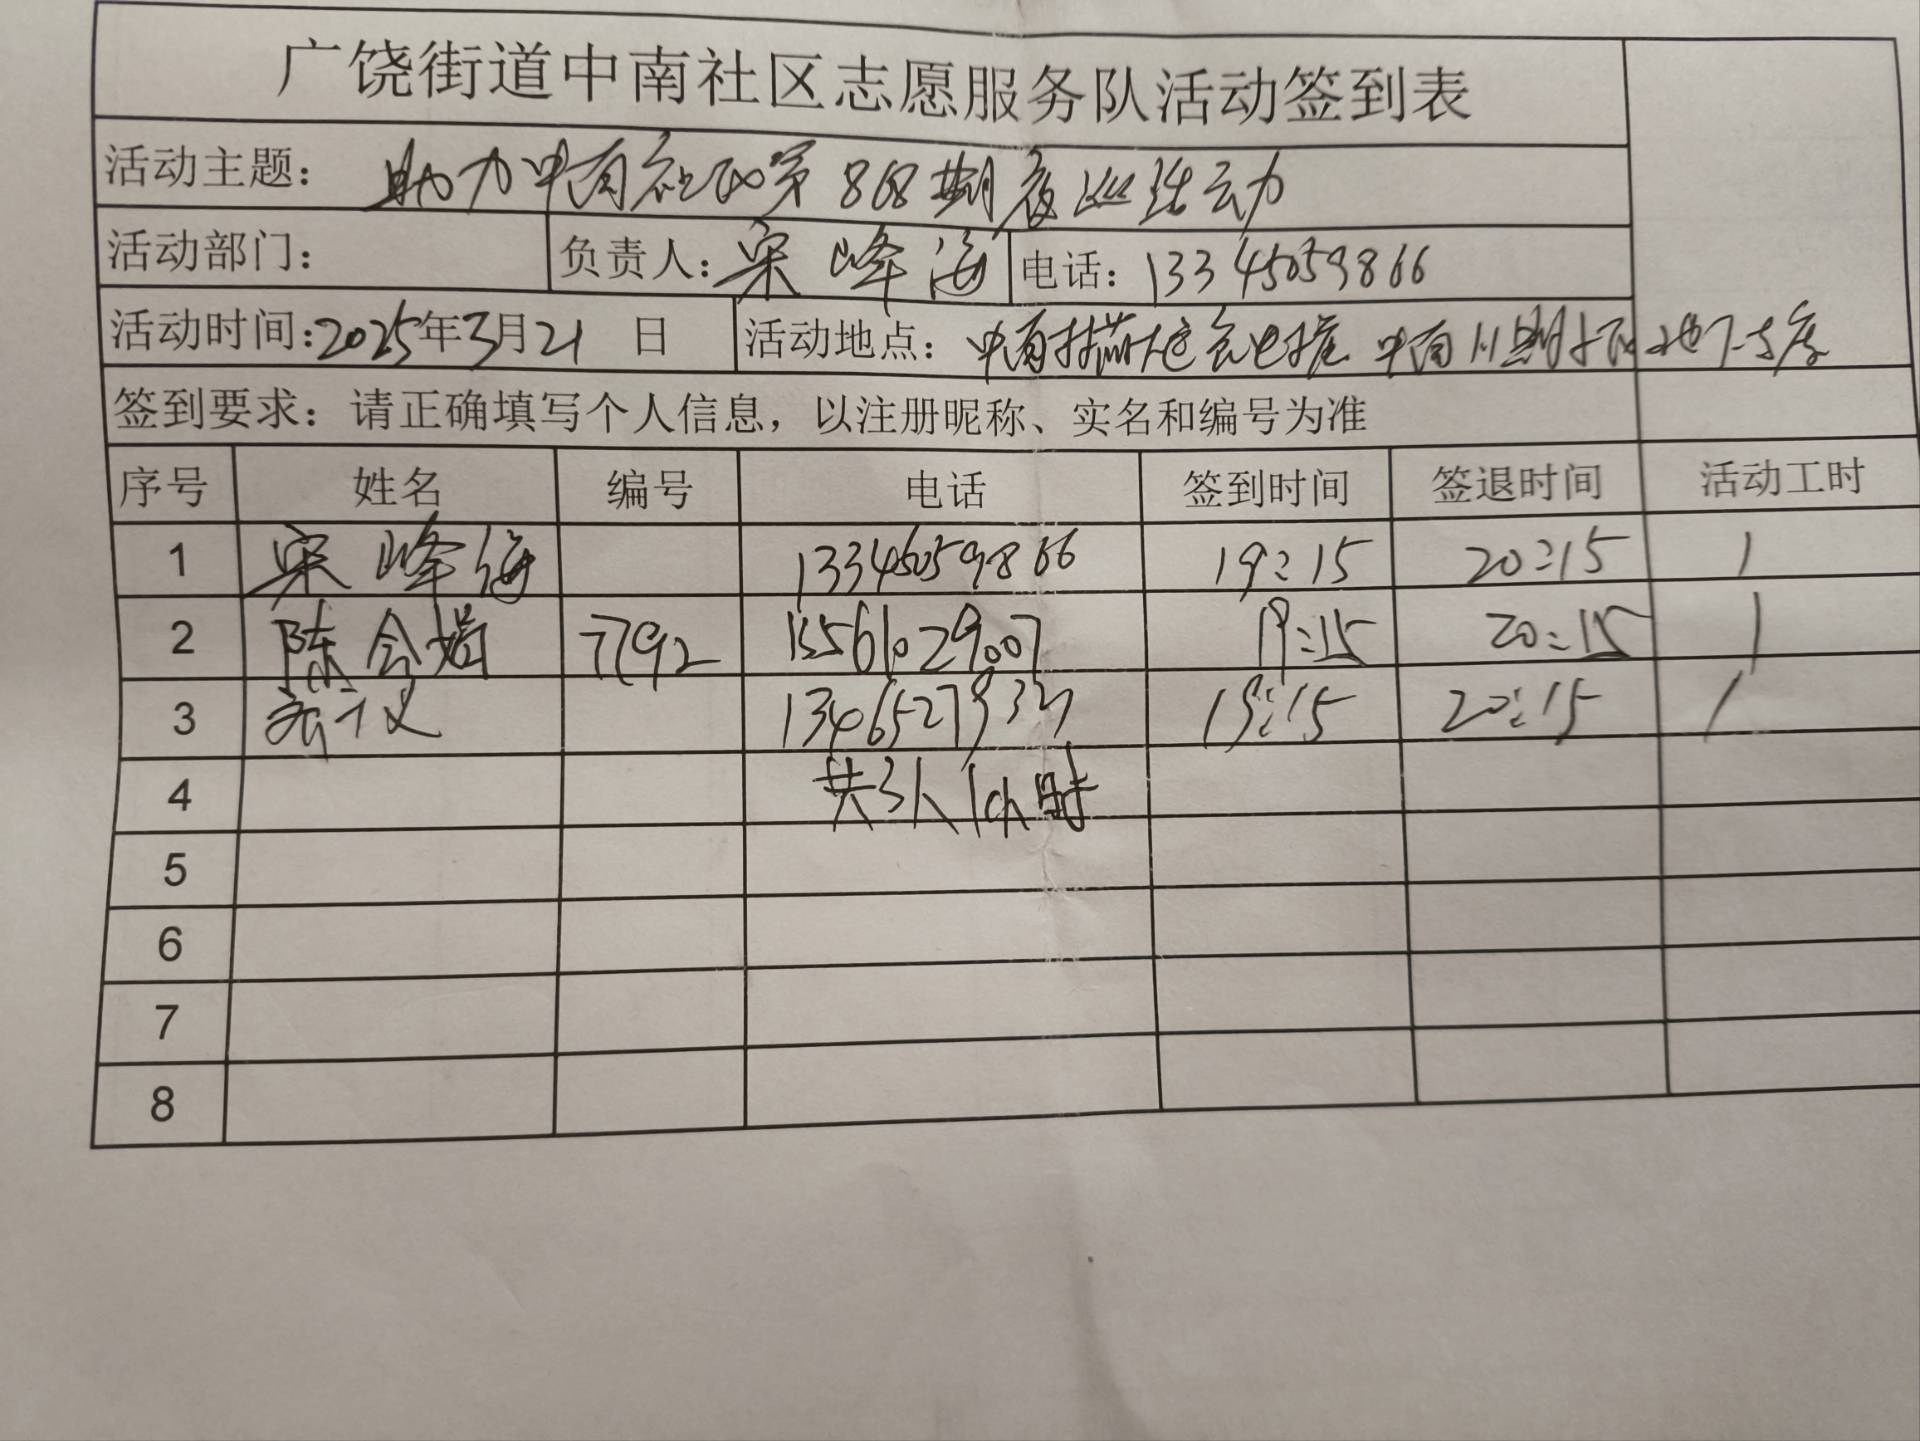 广饶街道中南社区志愿服务队活动签到表
活动主题： 助力中南社区第868期夜巡活动
活动部门： 负责人：宋峰海 电话：13345059866
活动时间：2025年3月21日 活动地点：中南 中南 期 地下
签到要求：请正确填写个人信息，以注册昵称、实名和编号为准
序号 姓名 编号 电话 签到时间 签退时间 活动工时
1 宋峰海 13345059866 19:15 20:15 1
2 陈会娟 7792 15561029007 19:15 20:15 1
3 19:15 20:15 1
4 共3人1小时
5
6
7
8